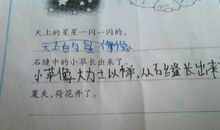 天上的星星一闪一闪的。
天上的星像
石缝中的小草长出来了。
小草像大力士一样,从石缝长出来
夏天,荷花开了。